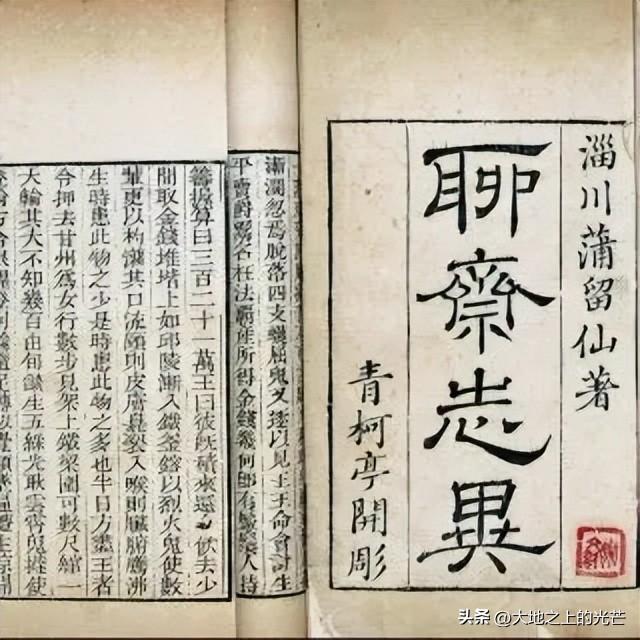 淄川蒲留仙著
聊齋志異
青柯亭開彫
漸濶忽焉脫落四支蠖屈鬼又逐以見王王命會計生
平賣爵鬻名枉法霸產所得金錢幾何即有鬡鬚人持
籌握算曰三百二十一萬王曰彼既積來還令飲去少
間取金錢堆堦上如邱陵漸入鐵釜鎔以烈火鬼使數
輩更以杓灌其口流頤則皮膚臭裂入喉則臟腑騰沸
生時患此物之少是時患此物之多也半日方盡王者
令押去甘州為女行數步見架上鐵梁圍可數尺綰一
大輪其大不知幾百由旬燄生五綵光耿雲霄鬼撻使
头条 @大地之上的光芒